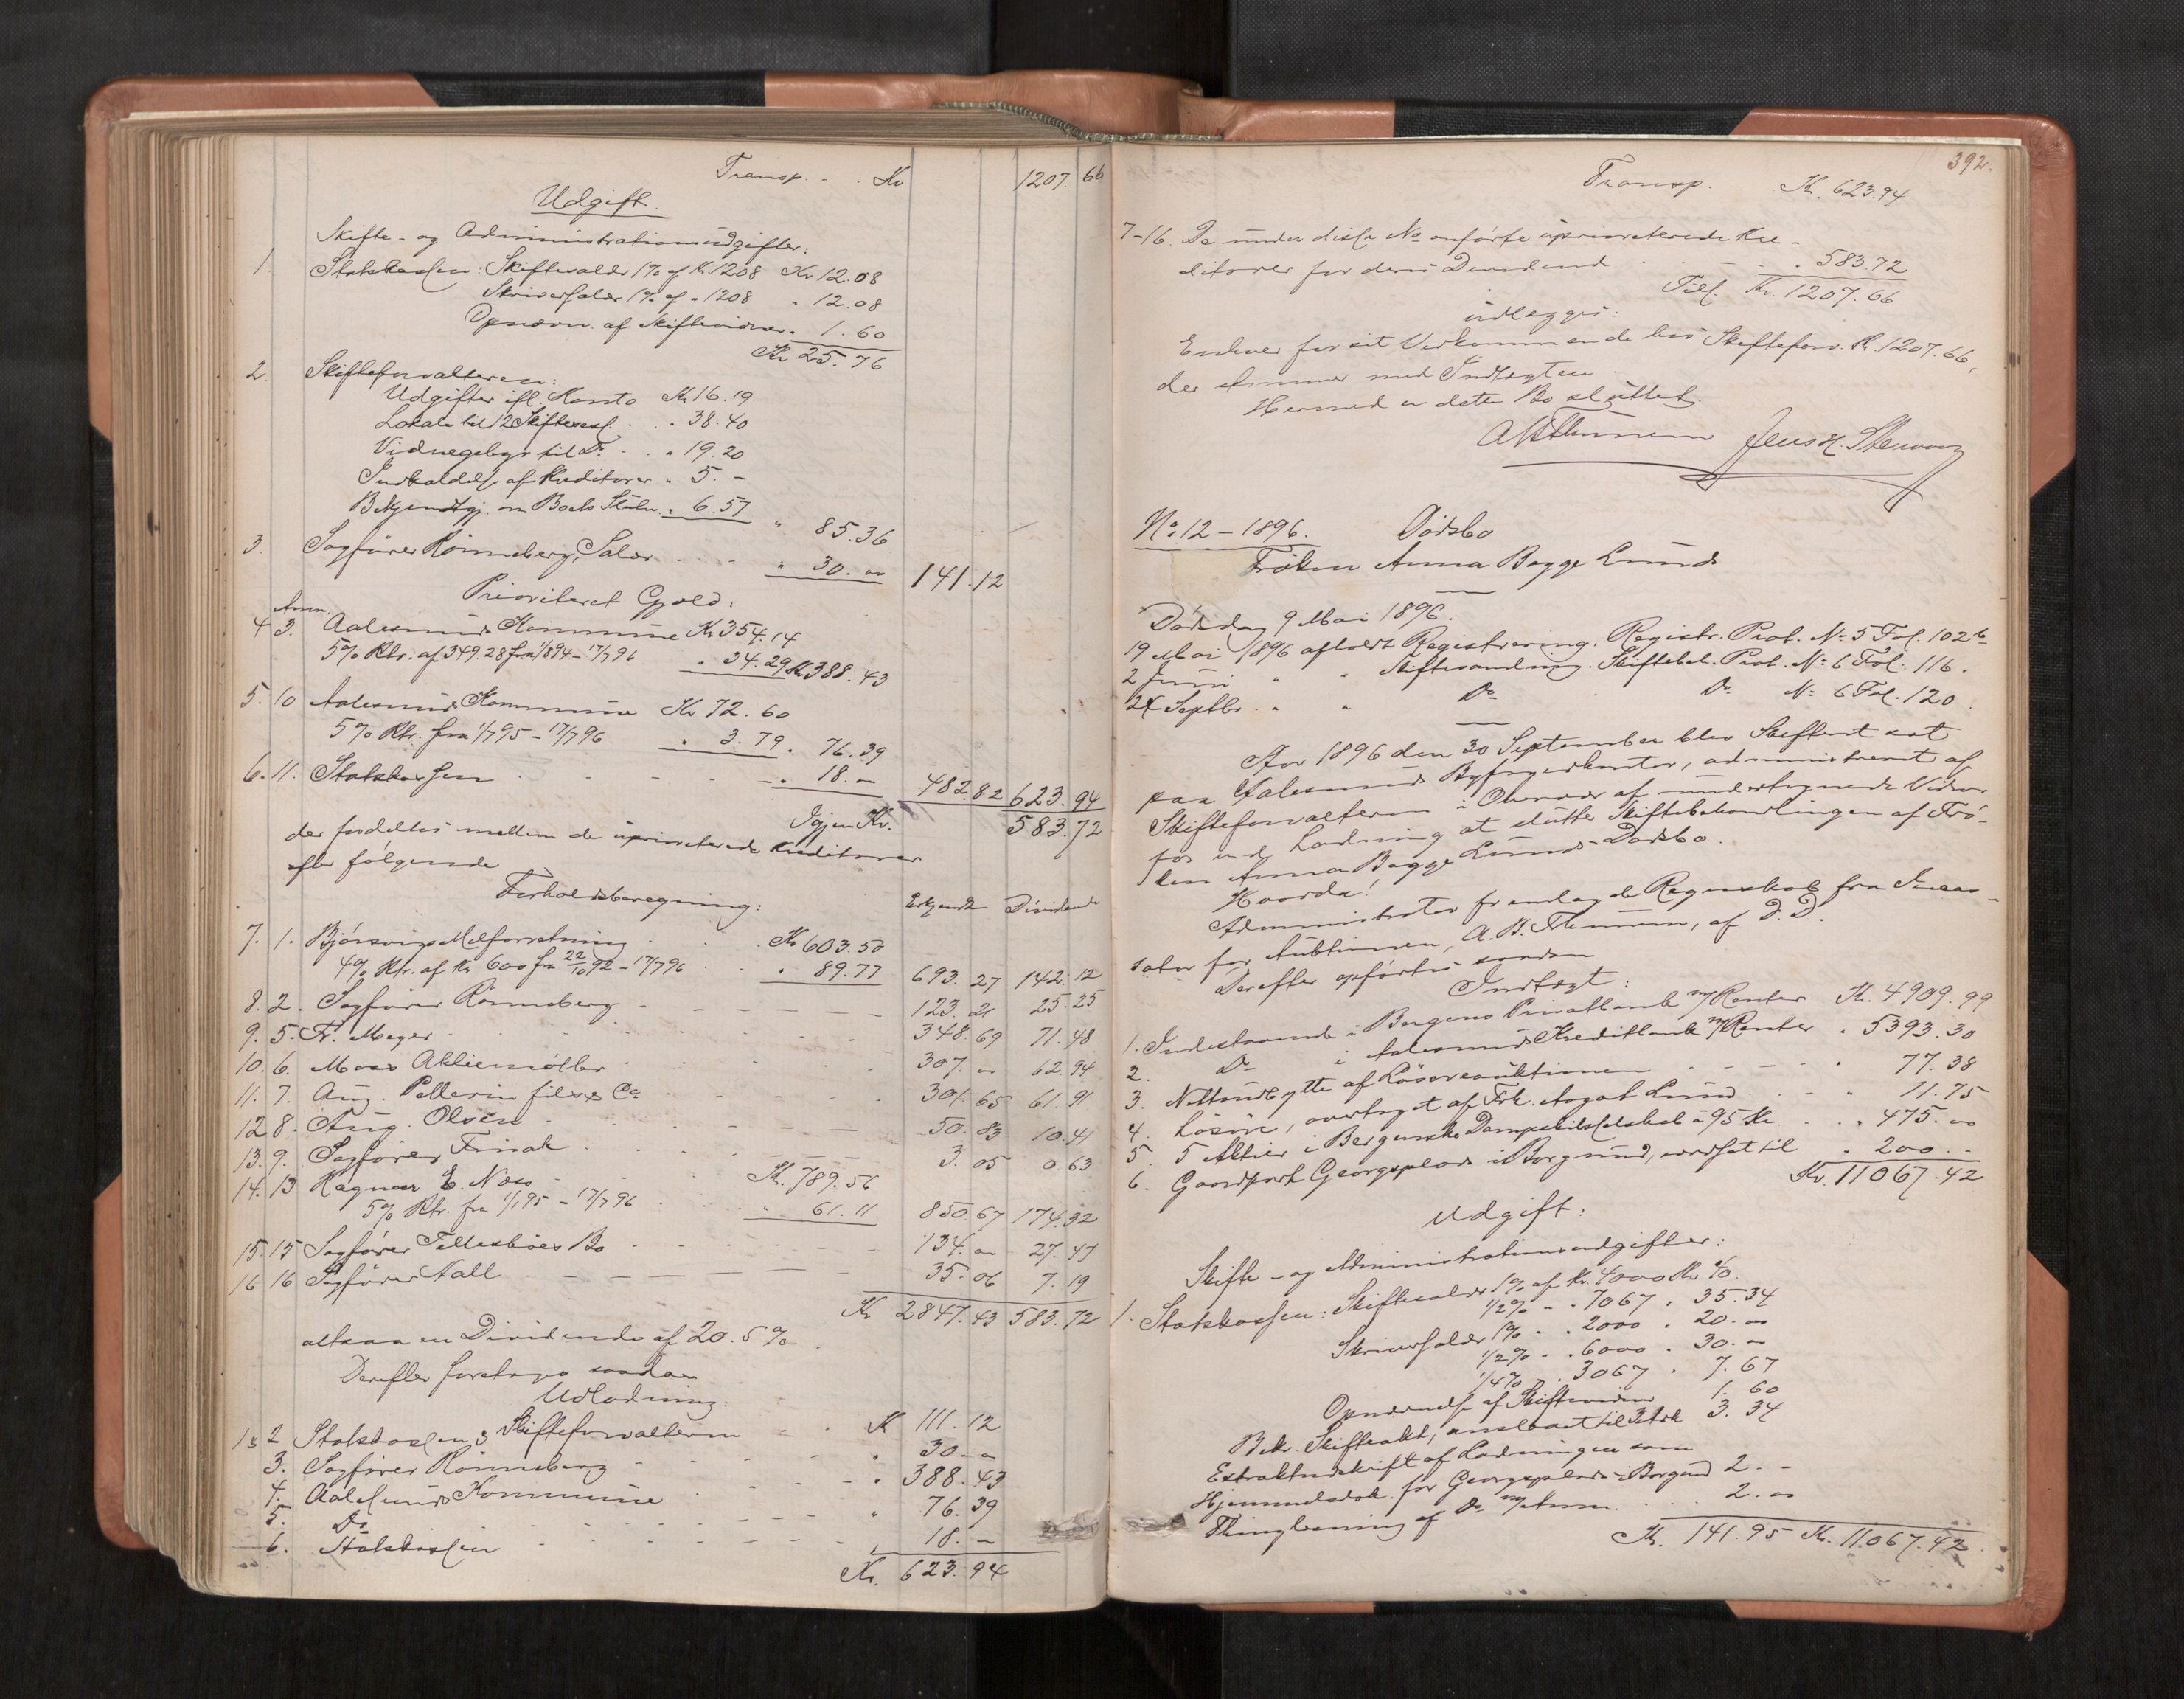 Transp. - . Kr 1207. 66
Udgift.
Skifte- og Administrationsudgifter:
1. Statskassen: Skiftesalær 1% af Kr. 1208 Kr 12.08
Skriversalær 1% af " 1208 " 12.08
Opnævn. af Skiftevidner " 1.60
Kr 25.76
2. Skifteforvalteren:
Udgifter ifl. Konto Kr 16.19
Lokale til 12 Skiftesaml. . " 38.40
Vidnegebyr til Do. . . " 19.20
Indkaldelse af Kreditorer " 5. -
Bekjendtgj. om Boets Slutn. " 6.57 " 85.36
3. Sagfører Rønneberg, Salær . . . . " 30. " 141.12
Prioriteret Gjæld:
Anm.
4 3. Aalesunds Kommune Kr 354.14
5% Rtr. af 349.28 fra 1/8 94 - 17/7 96 " 34.29 Kr 388.43
5. 10 Aalesunds Kommune Kr 72.60
5% Rtr. fra 1/7 95 - 17/7 96 " 3.79 " 76.39
6. 11. Statskassen . - - - - . 18. " 482.82 623.94
Igjen Kr. 583.72
der fordeltes mellem de uprioriterede Kreditorer
efter følgende
Forholdsberegning: Erkjendt Dividende
7. 1. Bjørsvigs Melforretning . . . Kr 603.50
4% Rtr. af Kr 600 fra 22/10 92 - 17/7 96 . . " 89.77 693.27 142.12
8. 2. Sagfører Rønneberg - - - - - - 123.21 25.25
9. 5. Fr. Meyer - - - - - - 348.69 71.48
10. 6. Moss Aktiemøller . . . . . 307. " 62.94
11. 7. Aug. Pellerin fils & Co . - - - - 301.65 61.91
12 8. Aug. Olsen - - - - - - 50.83 10.41
13. 9. Sagfører Frisak . - - - - - 3.05 0.63
14. 13 Ragnar E. Næss - - - Kr. 789.56
5% Rtr. fra 1/1 95 - 17/7 96 . . . " 61.11 850.67 174.32
15. 15 Sagfører Tellesbøes Bo - - - - 134. " 27.47
16 16 Sagfører Kall - - - - - - 35.06 7.19
Kr 2847.43 583.72
altsaa en Dividende af 20.5%.
Derefter foretoges saadan
Udlodning:
1 & 2 Statskassen & Skifteforvalteren - - Kr 111.12
3. Sagfører Rønneberg - - - - - " 30. "
4. Aalesunds Kommune . - - - - " 388.43
5. Do - - - - - - - " 76.39
6. Statskassen - - - - - - - " 18. -
Kr. 623.94
392.
Transp. Kr. 623.94
7-16. De under disse No anførte uprioriterede Kre-
ditorer for deres Dividende . . - - " 583.72
Tils. Kr. 1207.66
udlægges:
Enhver for sit Vedkommende hos Skifteforv. Kr. 1207.66,
der stemmer med Indtægten.
Hermed er dette Bo sluttet.
Jens H.
No. 12 - 1896. Dødsbo
Frøken Anna Bagge Lund
Dødsdag 9 Mai 1896.
19 Mai 1896 afholdt Registrering. Registr. Prot. No 5 Fol. 102 b
2 Juni " " Skiftesamling. Skiftebeh. Prot. No 6 Fol. 116.
24 Septbr. " " Do Do No 6 Fol. 120.
Aar 1896 den 30 September blev Skifteret sat
paa Aalesunds Byfogedkontor, administreret af
Skifteforvalteren i Overvær af undertegnede Vidner
for ved Lodning at slutte Skiftebehandlingen af Frø-
ken Anna Bagge Lunds Dødsbo.
Hvorda!
Administrator fremlagde Regnskab fra Incas-
sator for Auktionen, A. B. Thunem, af D. D.
Derefter opførtes saadan
Indtægt:
1. Indestaaende i Bergens Privatbank m/Renter Kr. 4909.99
2. Do i Aalesunds Kreditbank m/Renter " 5393.30
3. Nettoudbytte af Løsøreauktionen - - - - 77.38
4. Løsøre, overtaget af Frk. Aagot Lund . - " 11.75
5. 5 Aktier i Bergenske Dampskibsselskab á 95 Kr . . " 475. "
6. Gaardpart Georgsplads i Borgund, værdsat til " 200. -
Kr. 11067.42
Udgift:
Skifte- og Administrationsudgifter:
1. Statskassen: Skiftesalær 1% af Kr. 4000 Kr 40.
1/2% " " 7067 " 35.34
Skriversalær 1% " " 2000 " 20. "
1/2% " " 6000 " 30. "
1/4% " " 3067 " 7.67
Opnævnelse af Skiftevidner 1.60
Bekr. Skifteakt, anslaaet til 3 Ark 3.34
Extraktudskrift af Lodningen som
Hjemmelsdok. for Georgsplads i Borgund 2. -
Thinglæsning af Do m/Anm. . . . 2. "
Kr. 141.95 Kr. 11.067.42